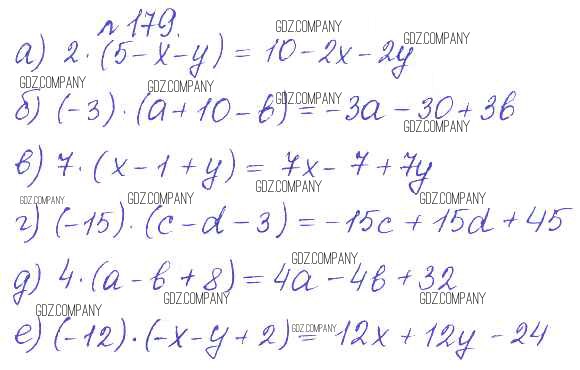 № 179.
GDZ.COMPANY
а) 2 · (5 - x - y) = 10 - 2x - 2y
GDZ.COMPANY
GDZ.COMPANY GDZ.COMPANY GDZ.COMPANY
б) (-3) · (a + 10 - b) = -3a - 30 + 3b
GDZ.COMPANY
в) 7 · (x - 1 + y) = 7x - 7 + 7y
GDZ.COMPANY
GDZ.COMPANY GDZ.COMPANY GDZ.COMPANY
г) (-15) · (c - d - 3) = -15c + 15d + 45
GDZ.COMPANY
д) 4 · (a - b + 8) = 4a - 4b + 32
GDZ.COMPANY GDZ.COMPANY
GDZ.COMPANY
е) (-12) · (-x - y + 2) = 12x + 12y - 24
GDZ.COMPANY